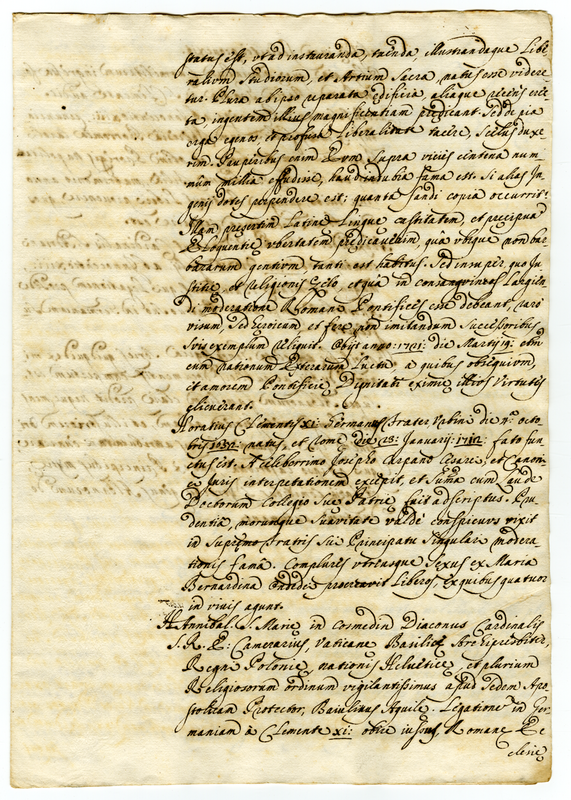 status est, ut ad instauranda, tuenda, illustrandaque Libe
ralium Studiorum, et Artium Sacra, natus esse videre
tur. Plura ab ipso reparata edificia, aliaque recens erec
ta ingentem illius magnificentiam predicant. Sed de pia
erga egenos, et profusa liberalitate tacere, Scelus duxe
rim. Pauperibus enim Eum supra vicies centena num
mûm millia effudisse, haud dubia fama est. Si alias In
genij dotes perpendere est; quanta fandi copia occurrit.
Nam presertim Latine Lingue castitatem, et precipuã
Eloquentie ubertatem predicaverim, quâ ubique non bar
bararum gentium tanti est habitus. Sed insuper, quo Ju
stitie, et Religionis Zelo, et quâ in consanguineos Largien
di moderatione Romani Pontifices esse debeant, raro
rum, sed heroicam, et fere non imitandum Successoribus
suis exemplum reliquit. Obijt anno: 1721: die Martij 19: cum
nationum Exterarum Luctu, a quibus obsequium,
et amorem Pontificie Dignitati eximie illius Virtutes
elicuerant.
Horatius Clementis XI: Germanus Frater Urbini die octo
bris natus, et Rome die 28: Januarij: 1712: fato fun
ctus est. A celeberrimo Josepho Carpano Cesarei, et Canoni
ci Juris interpretationem excepit, et Suma cum laude
Doctorum Collegio Sue Patrie fuit adscriptus. Pru
dentia, morumque Suavitate valdè conspicuus vixit
in Supremo Fratris Sui Principatu Singularis modera
tionis famâ. Complures utriusque Sexus ex Maria
Bernardina procreavit Liberos, ex quibus quatuor
in vivis agunt.
Annibal S. Marie in Cosmedin Diaconus Cardinalis
S. R. E: Camerarius, Vaticane Basilice Archipresbiter,
Regni Polonie, nationis Helvetice, et plurium
Religiosorum ordinum vigilantissimus apud Sedem Apo
stolicam Protector, Baiulivus Aquile. Legatione in Ger
maniam à Clemente XI: obire iussus, Romane Ec
clesie